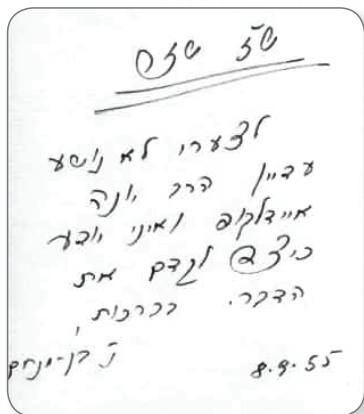 שז שזר
לצערי לא נושע
עדיין הרב יונה
איידלקופ ואיני יודע
כיצד לקדם את
הדבר. בברכות,
נ. בן-מנחם
8.9.55